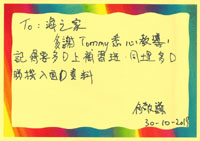 To: 海之家
多謝Tommy悉心教導!
記得要多D上補習班 同埋多D
時機入面D資料
30-10-2019